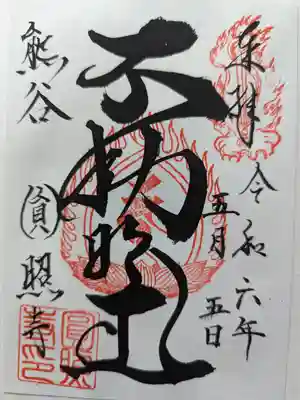 奉拝
令和六年
五月五日
不動明王
熊谷
圓照寺